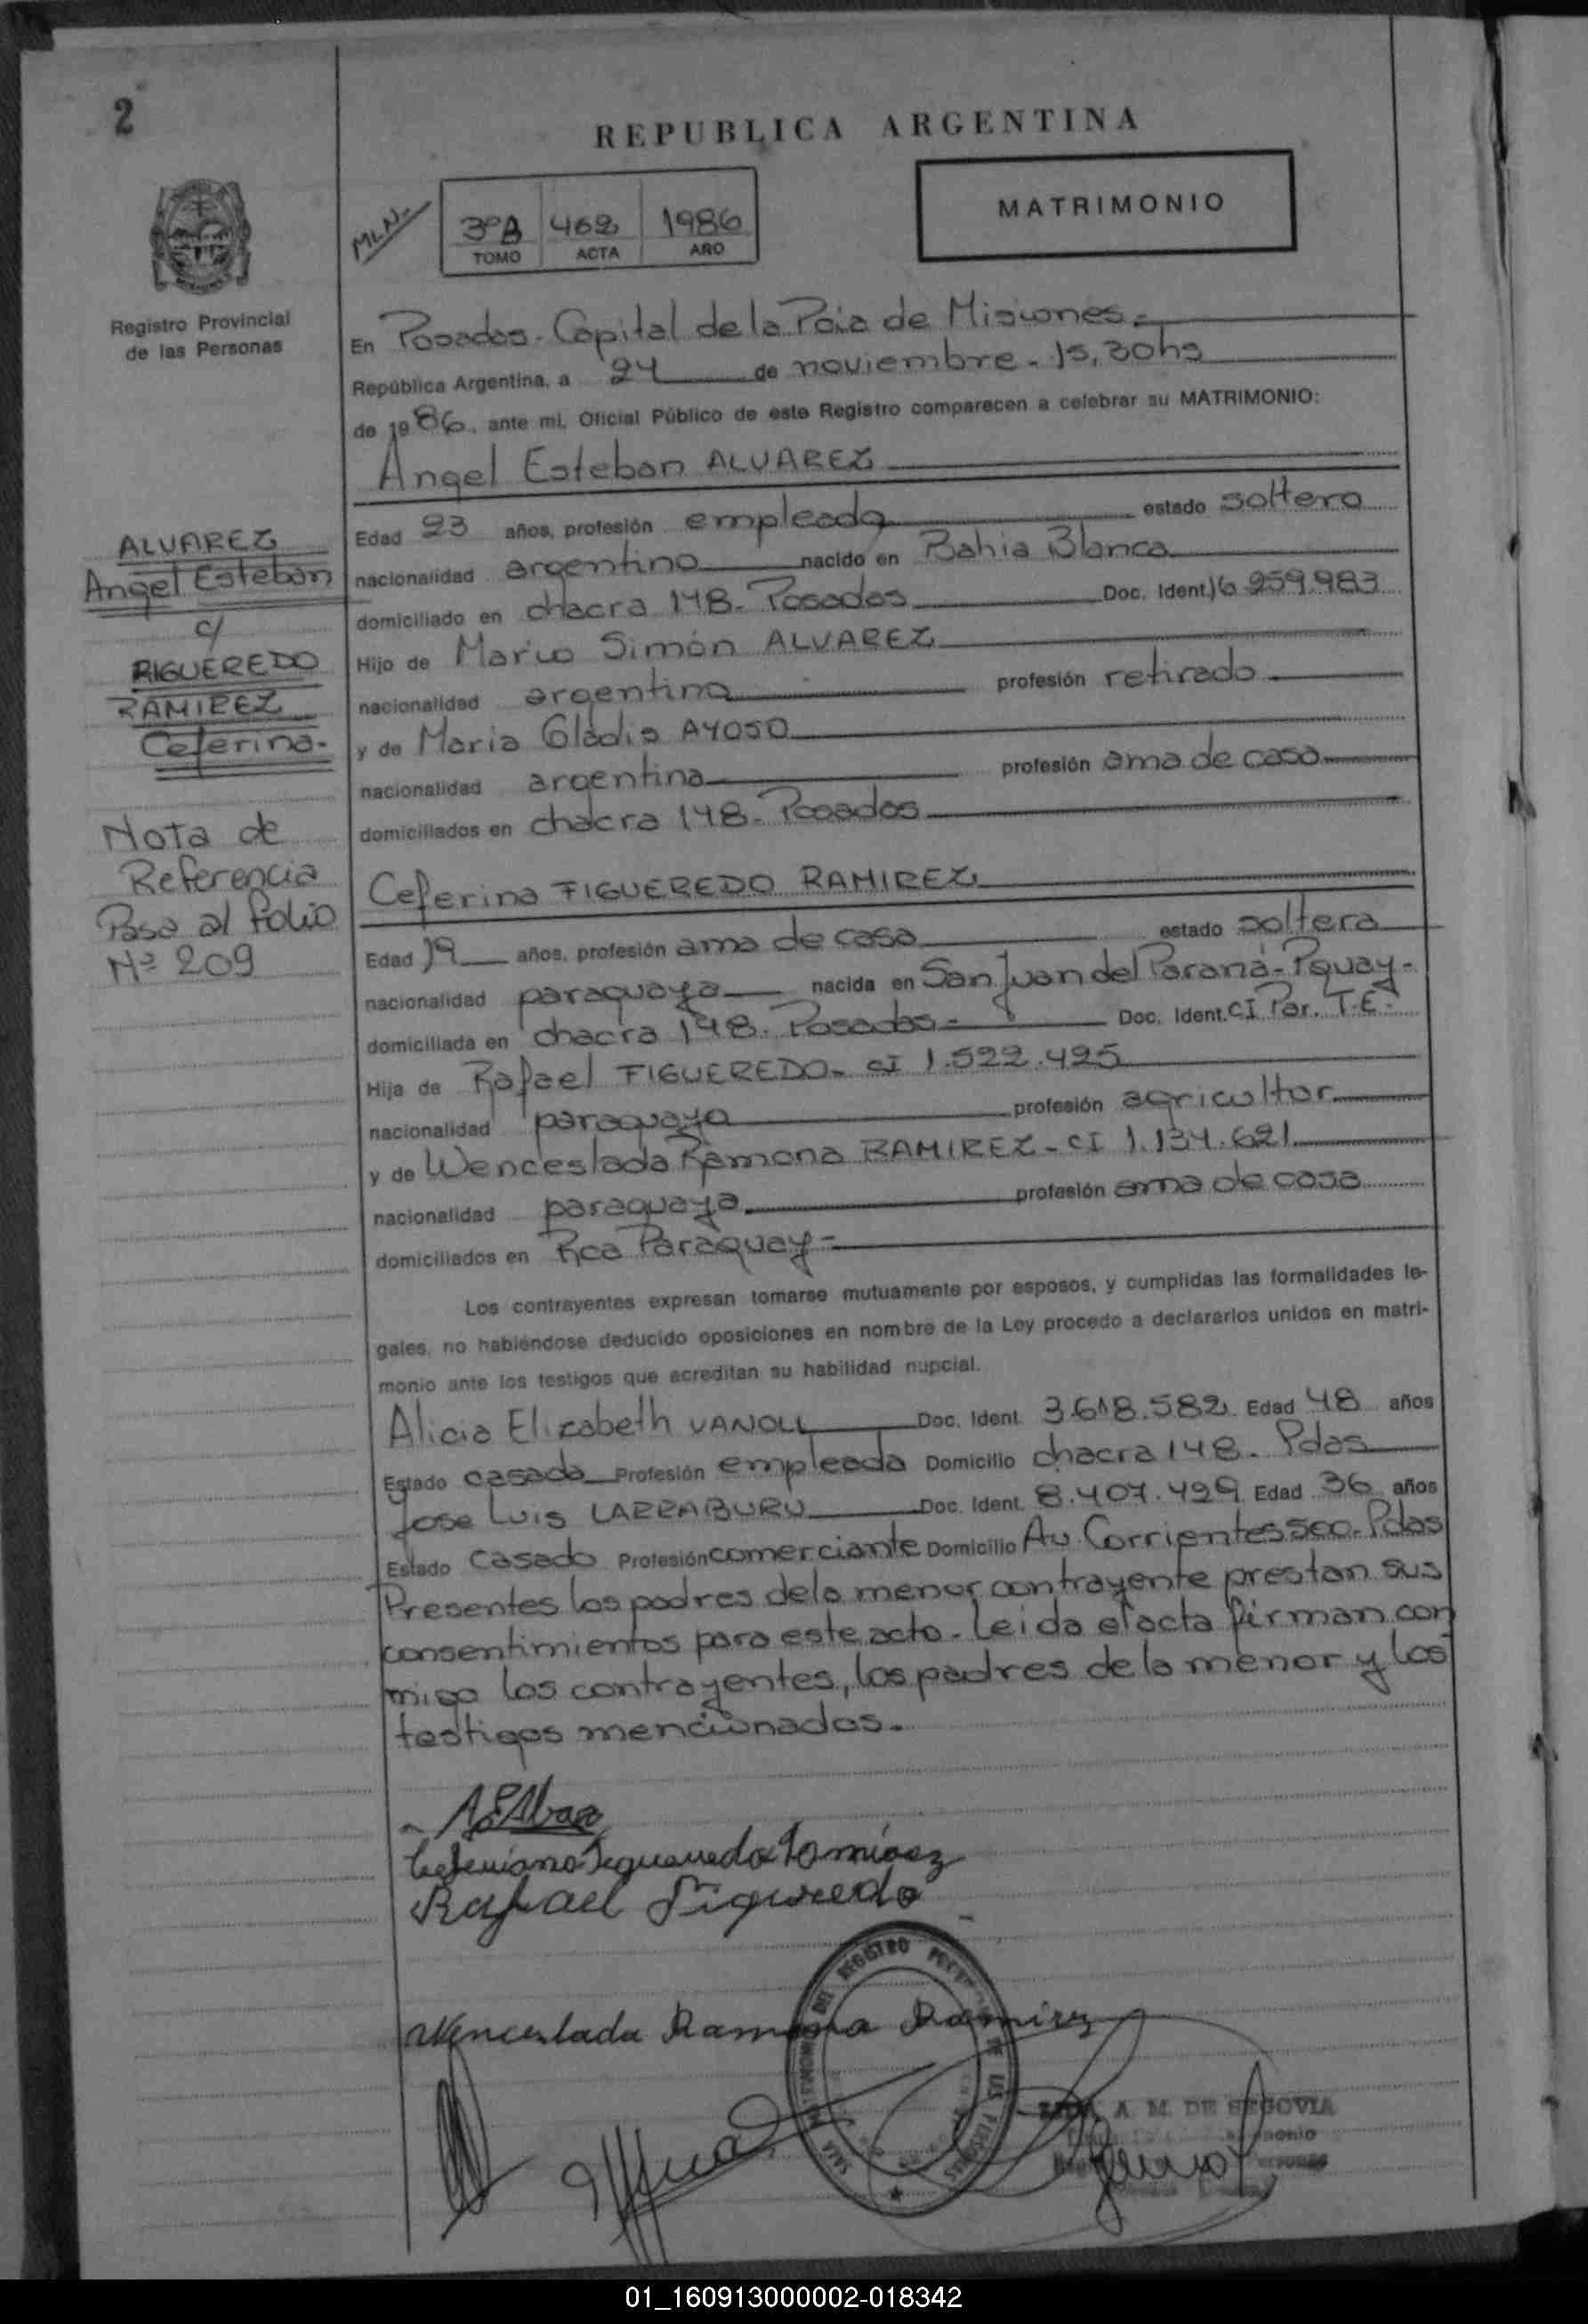 2
REPUBLICA ARGENTINA
MLN.
3ºB 462 1986
TOMO ACTA AÑO
MATRIMONIO
Registro Provincial
de las Personas
En Posadas. Capital de la Pcia de Misiones.-
República Argentina, a 24 de noviembre - 15,30hs
de 1986, ante mi, Oficial Público de este Registro comparecen a celebrar su MATRIMONIO:
Angel Esteban ALVAREZ
Edad 23 años, profesión empleado estado soltero
nacionalidad argentino nacido en Bahia Blanca
domiciliado en chacra 148. Posadas Doc. Ident. 16.259.983
Hijo de Mario Simón ALVAREZ
nacionalidad argentina profesión retirado
y de Maria Gladis AYOSO
nacionalidad argentina profesión ama de casa
domiciliados en chacra 148. Posadas
ALVAREZ
Angel Esteban
c/
RIGUEREDO
RAMIREZ
Ceferina.-
Nota de
Referencia
Pasa al folio
Nº 209
Ceferina FIGUEREDO RAMIREZ
Edad 19 años, profesión ama de casa estado soltera
nacionalidad paraguaya nacida en San Juan del Paraná-Pguay-
domiciliada en chacra 148. Posadas- Doc. Ident. CI Par. T.E.-
Hija de Rafael FIGUEREDO- CI 1.522.425
nacionalidad paraguaya profesión agricultor
y de Wenceslada Ramona RAMIREZ- CI 1.134.621
nacionalidad paraguaya profesión ama de casa
domiciliados en Rca Paraguay-
Los contrayentes expresan tomarse mutuamente por esposos, y cumplidas las formalidades le-
gales, no habiéndose deducido oposiciones en nombre de la Ley procedo a declararlos unidos en matri-
monio ante los testigos que acreditan su habilidad nupcial.
Alicia Elizabeth VANOLI Doc. Ident. 3.618.582 Edad 48 años
Estado casada Profesión empleada Domicilio chacra 148. Pdas
Jose Luis LARRABURU Doc. Ident. 8.407.429 Edad 36 años
Estado casado Profesión comerciante Domicilio Av. Corrientes 500. Pdas
Presentes los padres de la menor contrayente prestan sus
consentimientos para este acto. Leida el acta firman con
migo los contrayentes, los padres de la menor y los
testigos mencionados.
Rafael Figueredo
Wenceslada Ramona Ramirez
REGISTRO DE LAS PERSONAS
A. M. DE SEGOVIA
01_160913000002-018342